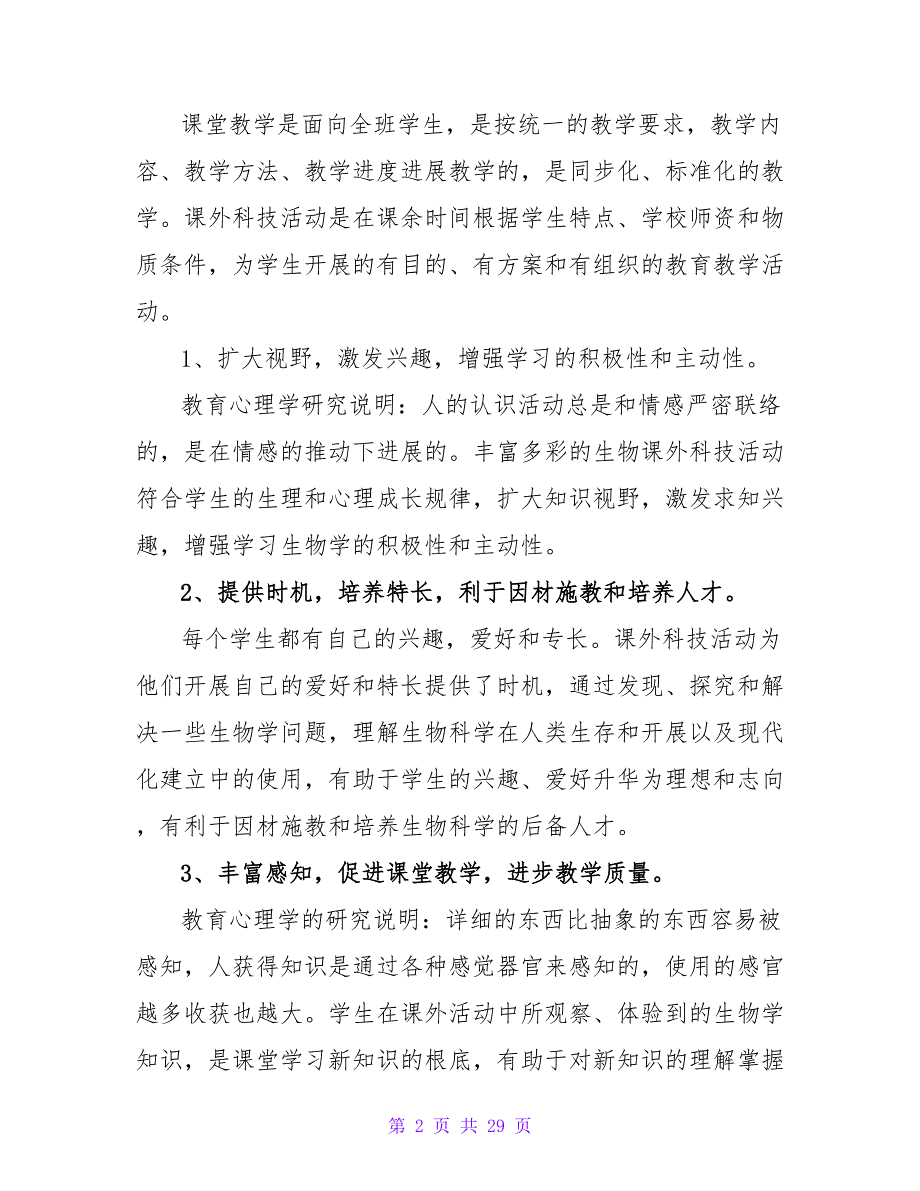 课堂教学是面向全班学生，是按统一的教学要求，教学内
容、教学方法、教学进度进展教学的，是同步化、标准化的教
学。课外科技活动是在课余时间根据学生特点、学校师资和物
质条件，为学生开展的有目的、有方案和有组织的教育教学活
动。
1、扩大视野，激发兴趣，增强学习的积极性和主动性。
教育心理学研究说明：人的认识活动总是和情感严密联络
的，是在情感的推动下进展的。丰富多彩的生物课外科技活动
符合学生的生理和心理成长规律，扩大知识视野，激发求知兴
趣，增强学习生物学的积极性和主动性。
2、提供时机，培养特长，利于因材施教和培养人才。
每个学生都有自己的兴趣，爱好和专长。课外科技活动为
他们开展自己的爱好和特长提供了时机，通过发现、探究和解
决一些生物学问题，理解生物科学在人类生存和开展以及现代
化建立中的使用，有助于学生的兴趣、爱好升华为理想和志向
，有利于因材施教和培养生物科学的后备人才。
3、丰富感知，促进课堂教学，进步教学质量。
教育心理学的研究说明：详细的东西比抽象的东西容易被
感知，人获得知识是通过各种感觉器官来感知的，使用的感官
越多收获也越大。学生在课外活动中所观察、体验到的生物学
知识，是课堂学习新知识的根底，有助于对新知识的理解掌握
第 2 页 共 29 页